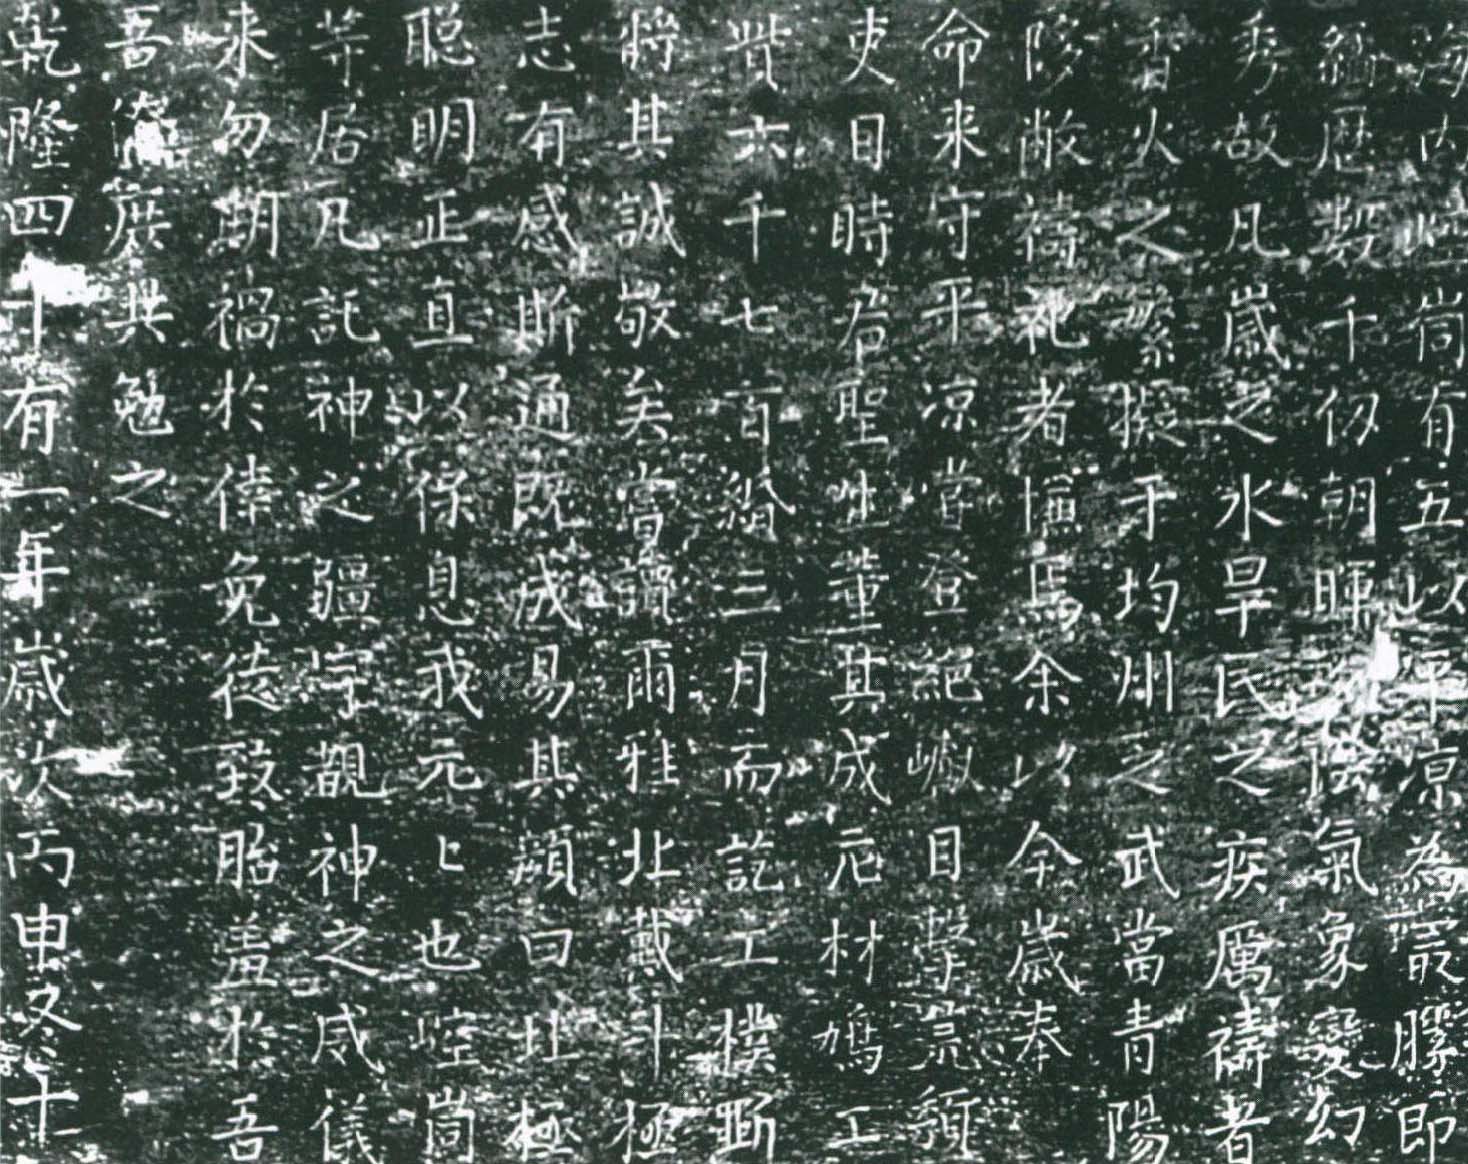 海內崆峒有五以平凉為最勝即
經歷数千仞朝暉夕陰氣象變幻
秀故凡歲之水旱民之疾厲禱者
香火之繁擬于均州之武當青陽
除敝禱祀者慎焉余以今歲奉
命来守平凉嘗登絕巘目擊荒頹
吏日時君聖唑董其成庀材鳩工
貲六千七百緡三月而訖工樸斲
將其誠敬矣嘗讀爾雅北戴斗極
志有感斯通既成易其顏曰北極
聰明正直以保息我元元也崆峒
等居凡託神之疆宇覩神之威儀
来勿期禍於倖免德致貽羞於吾
吾儕庶共勉之
乾隆四十有一年歲次丙申冬十